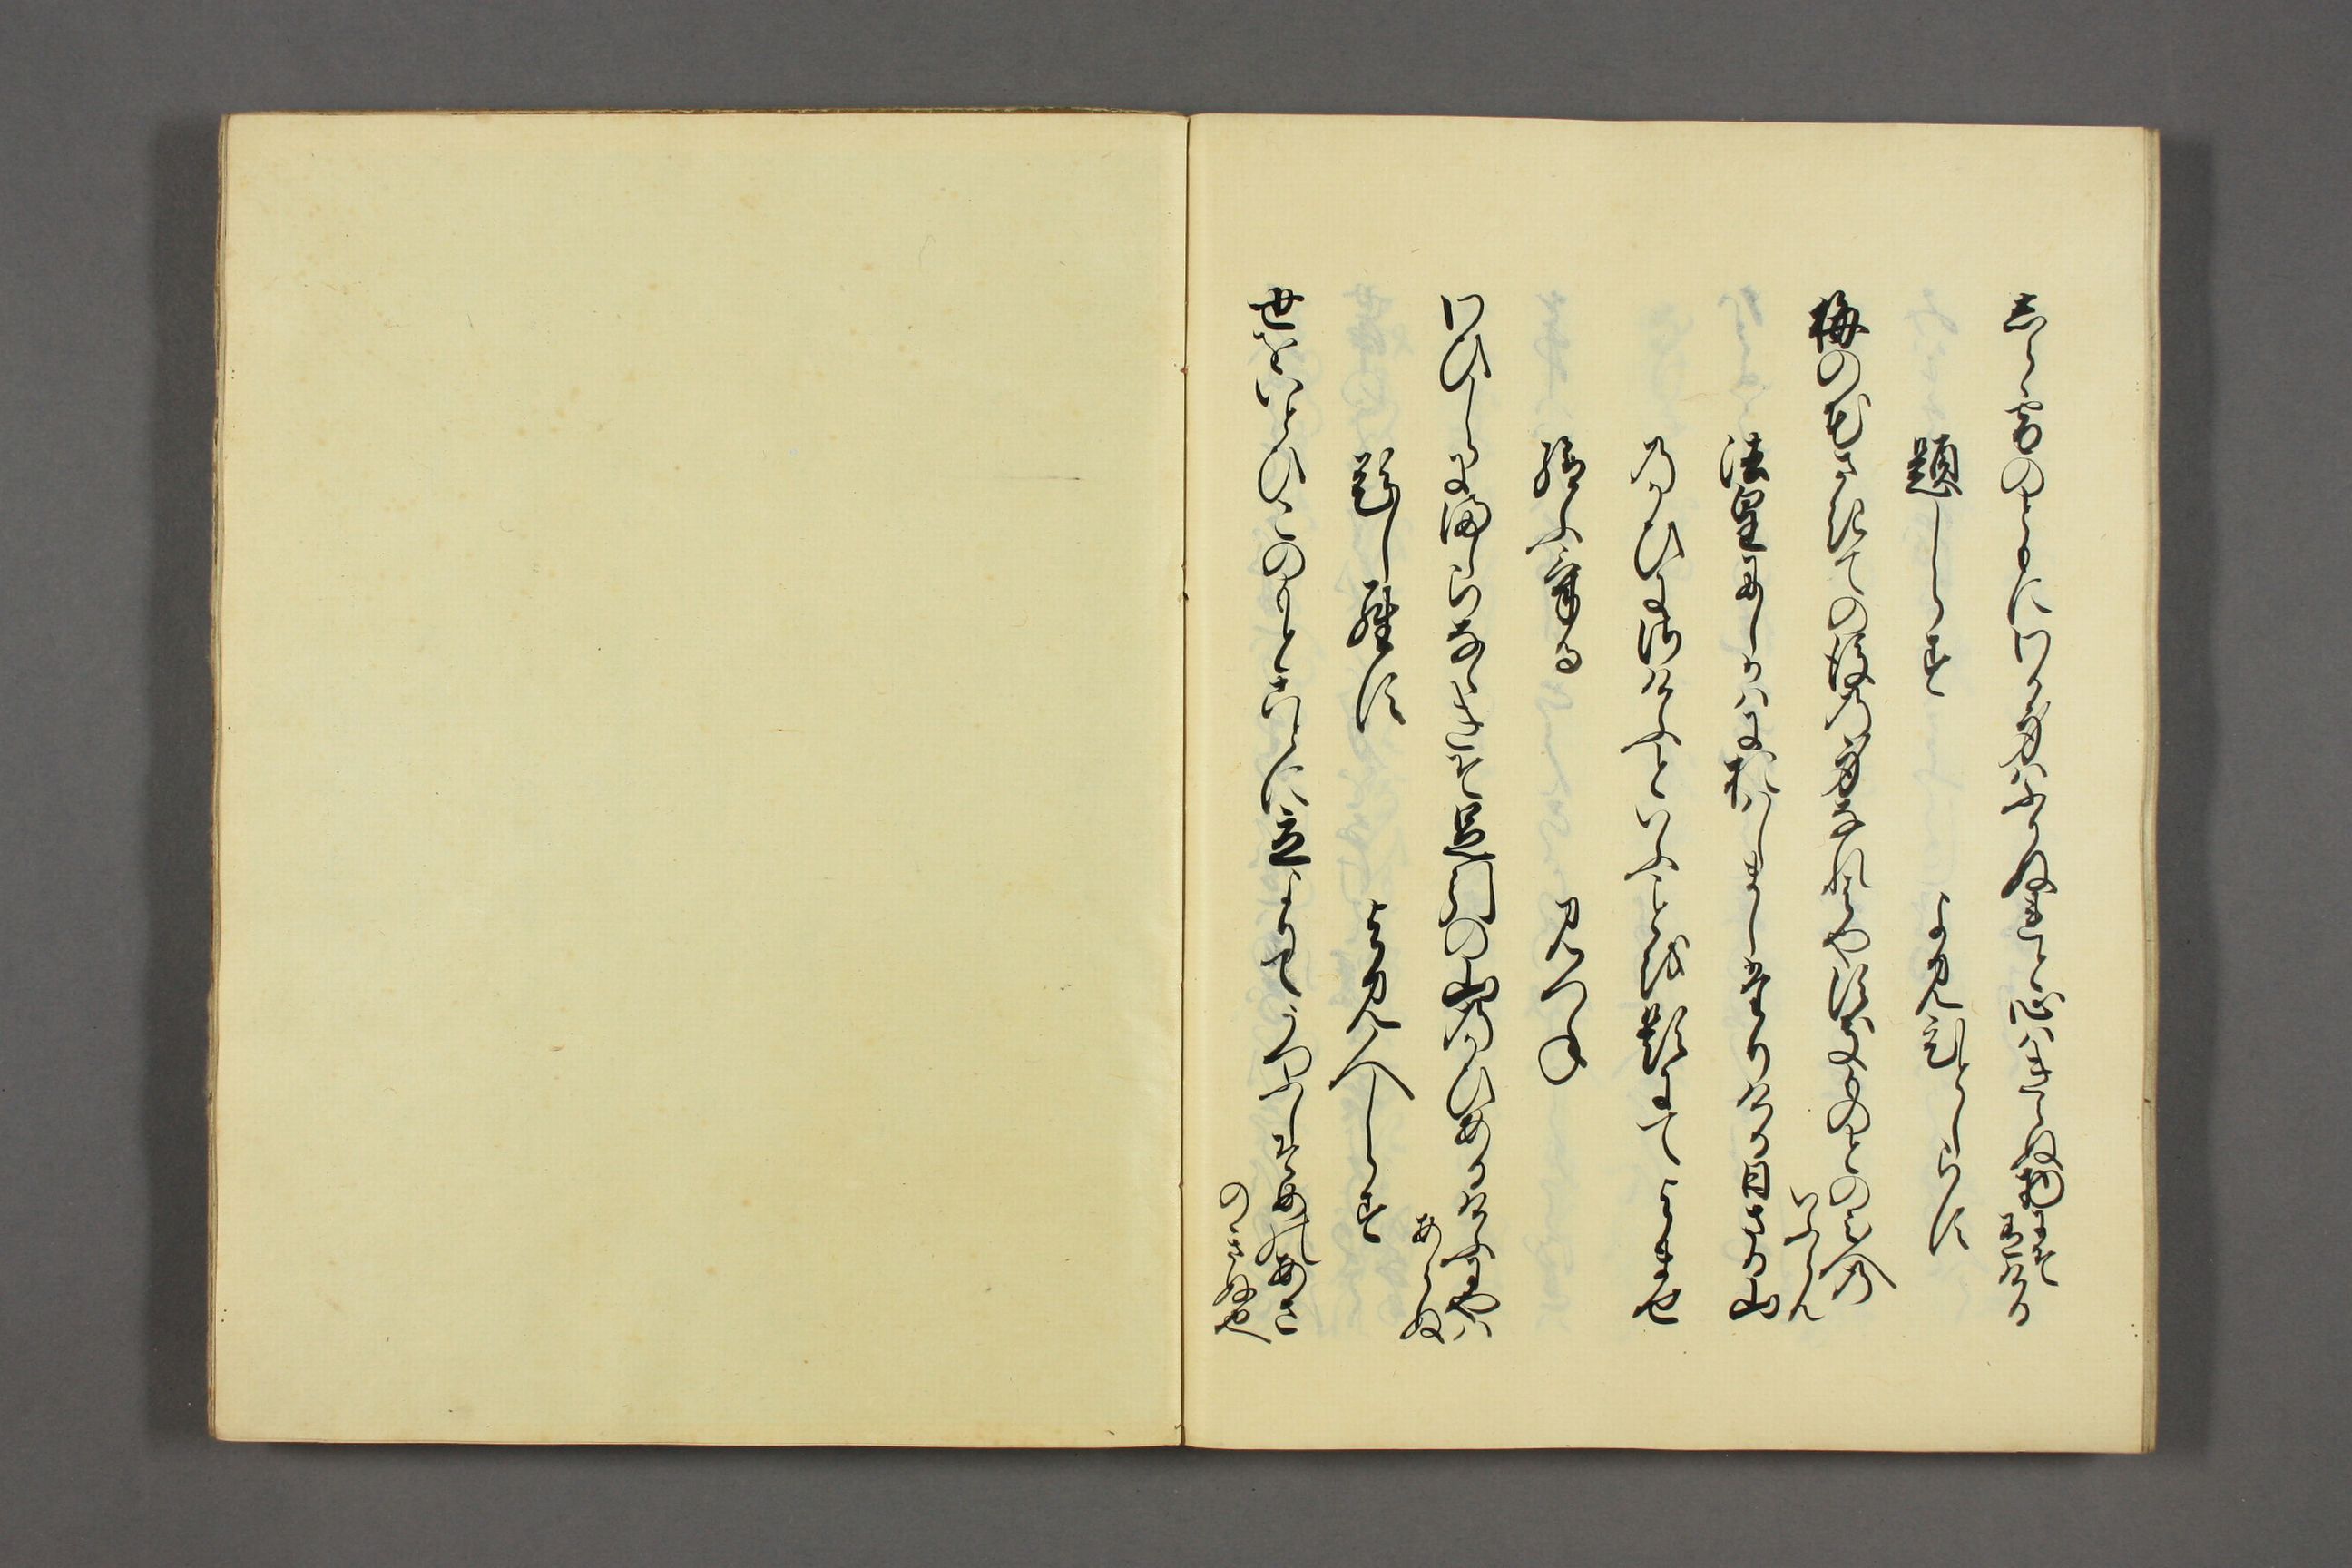 しら雪のともにわか身はふりぬれと心はきえぬ物にそ
ありける
題しらす　よみ人しらす
梅の花さきての後の身なれはやすき物とのみ人の
いふらん
法皇にしかはにおはしましたりける日さる山
のかひにさけふといふことを題にてよませ
給ふける　みつね
わひしらにましらなゝきそ足引の山のかひあるけふにやは
あらぬ
題しらす　よみ人しらす
世をいとひこのもとことに立よりてうつふしそめのあさ
のきぬ也